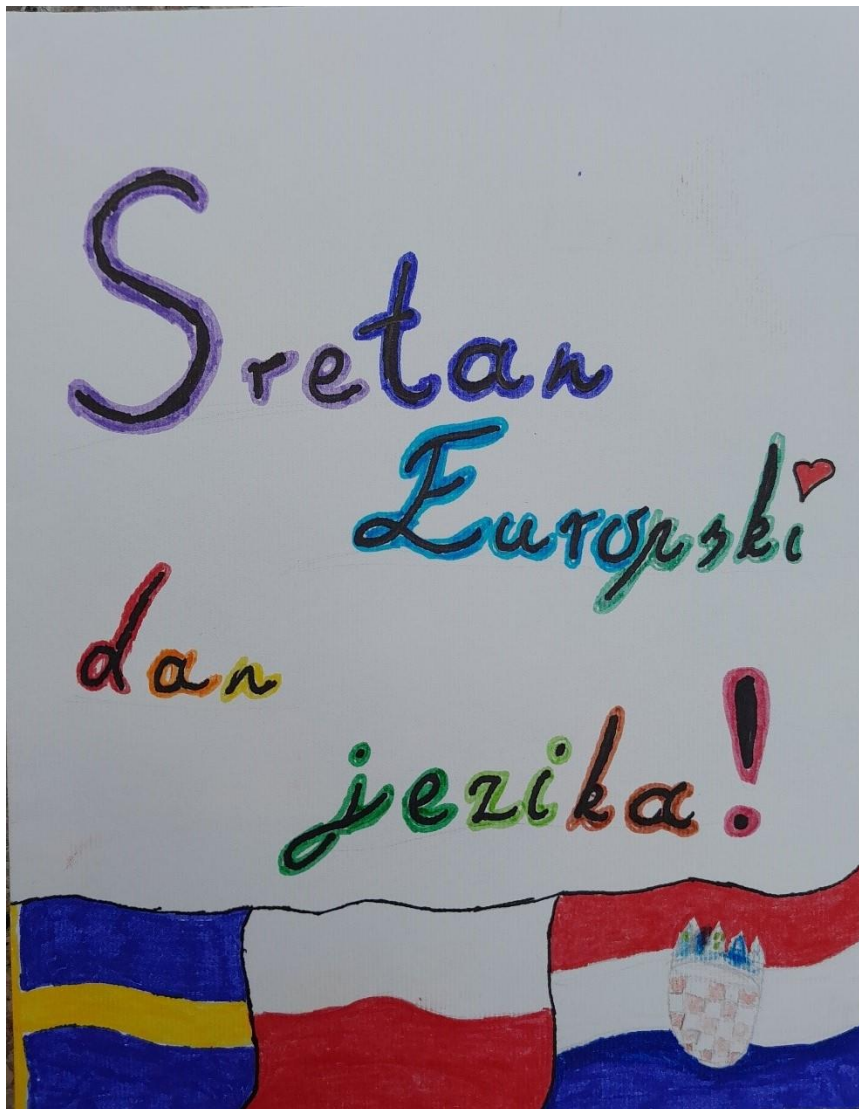 Sretan
Europski
dan
jezika!